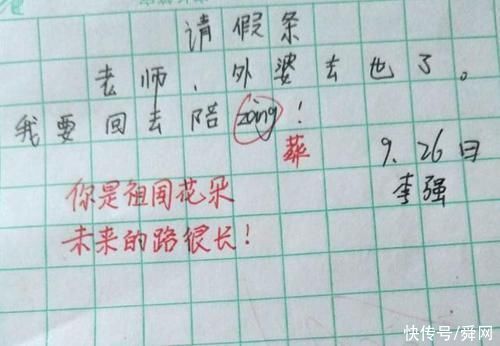 请假条
老师、外婆去也了。
我要回去陪zàng！
葬
9.26日
李强
你是祖国花朵
未来的路很长！
快传号/舜网